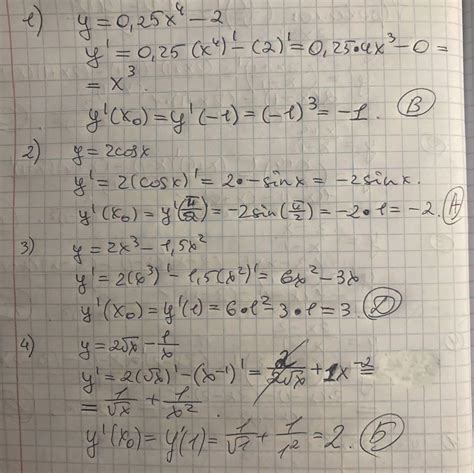 1) y = 0,25x⁴ − 2
y' = 0,25 (x⁴)' − (2)' = 0,25·4x³ − 0 =
= x³.
y'(x₀) = y'(−1) = (−1)³ = −1. В
2) y = 2cosx
y' = 2(cosx)' = 2·−sinx = −2sinx.
y'(x₀) = y'(π/2) = −2sin(π/2) = −2·1 = −2. А
3) y = 2x³ − 1,5x²
y' = 2(x³)' − 1,5(x²)' = 6x² − 3x
y'(x₀) = y'(1) = 6·1² − 3·1 = 3. Д
4) y = 2√x − 1/x
y' = 2(√x)' − (x⁻¹)' = 2/2√x + 1x⁻² =
= 1/√x + 1/x².
y'(x₀) = y'(1) = 1/√1 + 1/1² = 2. Б